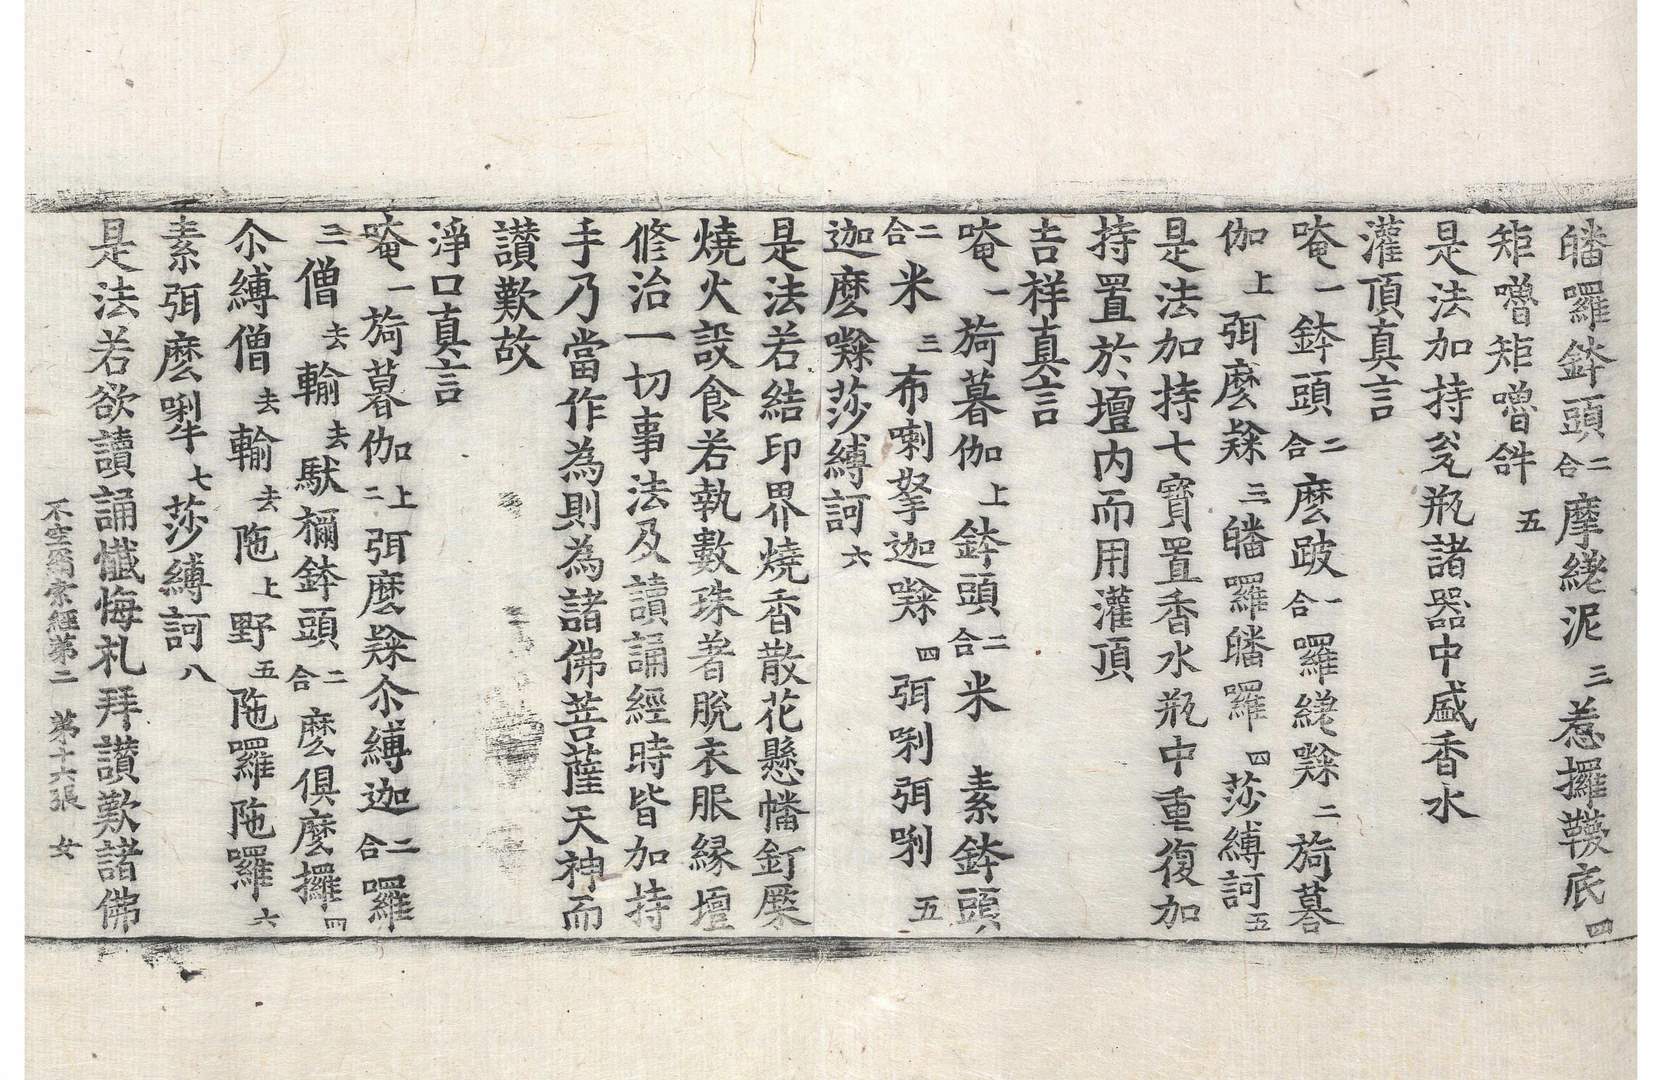 皤囉鉢頭二合摩縒泥三惹攞鞿底四
矩嚕矩嚕𤙖五
是法加持瓮瓶諸器中盛香水
灌頂真言
唵一鉢頭二合麽跛一合囉縒㘑二旖暮
伽上弭麽㘑三皤囉皤囉四莎縛訶五
是法加持七寶置香水瓶中重復加
持置於壇內而用灌頂
吉祥真言
唵一旖暮伽上鉢頭二合米 素鉢頭
二合米三布喇拏迦㘑四弭唎弭唎五
迦麽㘑莎縛訶六
是法若結印界燒香散花懸幡釘橛
燒火設食若執數珠著脫衣服緣壇
修治一切事法及讀誦經時皆加持
手乃當作為則為諸佛菩薩天神而
讃歎故
淨口真言
唵一旖暮伽上二弭麽㘑尒縛迦二合囉
三僧去輸去馱禰鉢頭二合麽俱麽攞四
尒縛僧去輸去陁上野五陁囉陁囉六
素弭麽㘑七莎縛訶八
不空羂索經第二 第十六張 女
是法若欲讀誦懺悔礼拜讃歎諸佛